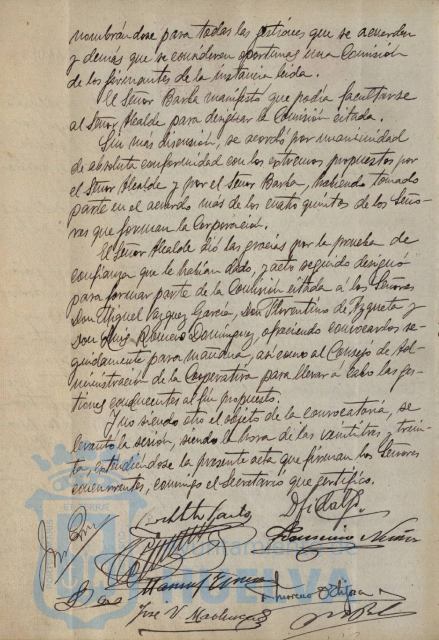 nombrándose para todas las gestiones que se acuerden
y demás que se consideren oportunas una Comisión
de los firmantes de la instancia leida.
El Señor Barba manifestó que podia facultarse
al Señor Alcalde para designar la Comisión citada.
Sin más discusión, se acordó por unanimidad
de absoluta conformidad con los extremos propuestos por
el Señor Alcalde y por el Señor Barba, habiendo tomado
parte en el acuerdo más de los cuatro quintos de los Seño-
res que forman la Corporación.
El Señor Alcalde dió las gracias por la prueba de
confianza que le habian dado, y acto seguido designó
para formar parte de la Comisión citada a los Señores
Don Miguel Vazquez García, Don Florentino de Azqueta y
Don Luis Romero Dominguez, ofreciendo convocarlos se-
guidamente para mañana, así como al Consejo de Ad-
ministración de la Cooperativa para llevar a cabo las ges-
tiones conducentes al fin propuesto.
Y no siendo otro el objeto de la convocatoria, se
levantó la sesión, siendo la hora de las veintitres y trein-
ta, extendiéndose la presente acta que firman los Señores
concurrentes, conmigo el Secretario que certifico.
Manuel
José V. Machuca
HUELVA